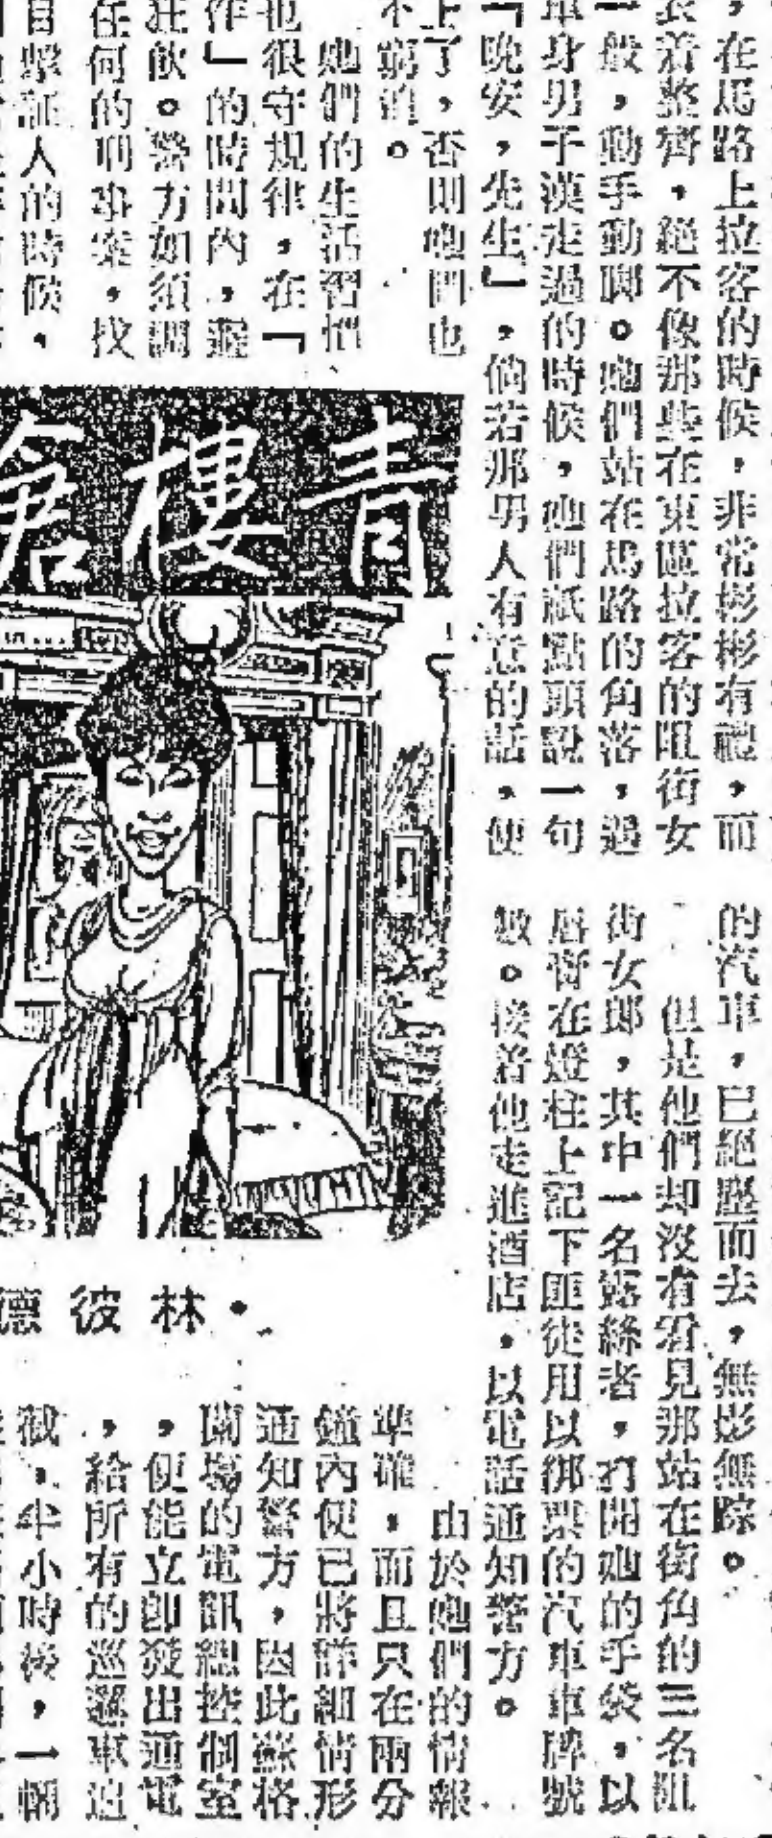 ，在馬路上拉客的時候，非常彬彬有禮，而
衣着整齊，絕不像那些在東區拉客的阻街女
一般，動手動脚。她們站在馬路的角落，遇
單身男子漢走過的時候，她們祇點頭說一句
「晚安，先生」，倘若那男人有意的話，便
上了，否則她們也
不窮追。
她們的生活習慣
也很守規律，在「
作」的時間內，避
狂飲。警方如須調
任何的刑事案，找
目擊証人的時候，
青樓
·林彼德
的汽車，已絕塵而去，無影無踪。
但是他們却沒有看見那站在街角的三名阻
街女郎，其中一名露絲者，打開她的手袋，以
唇膏在燈柱上記下匪徒用以綁票的汽車車牌號
數。接着他走進酒店，以電話通知警方。
由於她們的情報
準確，而且只在兩分
鐘內便已將詳細情形
通知警方，因此蘇格
蘭場的電訊總控制室
，便能立即發出通電
，給所有的巡邏車追
截，半小時後，一輛